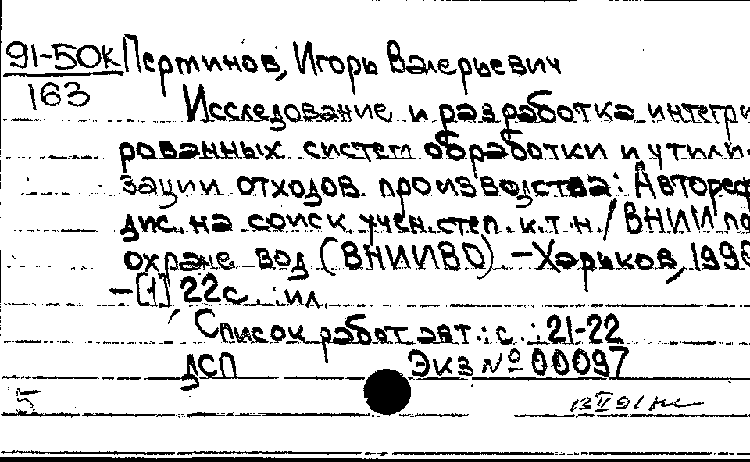 91-50к Пертинов, Игорь Валерьевич
163
Исследование и разработка интегри
рованных систем обработки и утили-
зации отходов производства: Автореф
дис. на соиск. учен. степ. к.т.н. / ВНИИ по
охране вод (ВНИИВО). – Харьков, 1990
– [1] 22с. : ил.
Список работ авт.: с. : 21-22
ДСП Экз № 00097
5